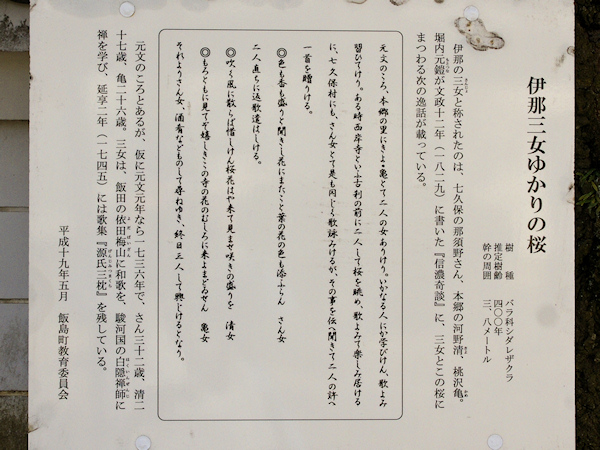 伊那三女ゆかりの桜
樹種　バラ科シダレザクラ
推定樹齢　四〇〇年
幹の周囲　三、八メートル
伊那の三女と称されたのは、七久保の那須野さん、本郷の河野清、桃沢亀。
堀内元鎧が文政十二年（一八二九）に書いた『信濃奇談』に、三女とこの桜に
まつわる次の逸話が載っている。
元文のころ、本郷の里にきよ・亀とて二人の女ありけり。いかなる人にか学びけん、歌よみ
習ひてけり。ある時西岸寺といふ古刹の前に二人して桜を眺め、歌よみて楽しみ居ける
に、七久保村にも、さん女とて是も同じく歌詠みけるが、その事を伝へ聞きて二人の許へ
一首を贈りける。
◎色も香も盛りと聞きし花にまたこと葉の花の色も添ふらん　さん女
二人直ちに返歌遣はしける。
◎吹く風に散らば惜しけん桜花はや来て見ませ咲きの盛りを　清女
◎もろともに見てぞ嬉しきこの寺の花のむしろに来よまどゐせん　亀女
それよりさん女、酒肴などものして尋ねゆき、終日三人して興じけるとなり。
元文のころとあるが、仮に元文元年なら一七三六年で、さん三十二歳、清二
十七歳、亀二十六歳。三女は、飯田の依田梅山に和歌を、駿河国の白隠禅師に
禅を学び、延享二年（一七四五）には歌集『源氏三枕』を残している。
平成十九年五月　飯島町教育委員会